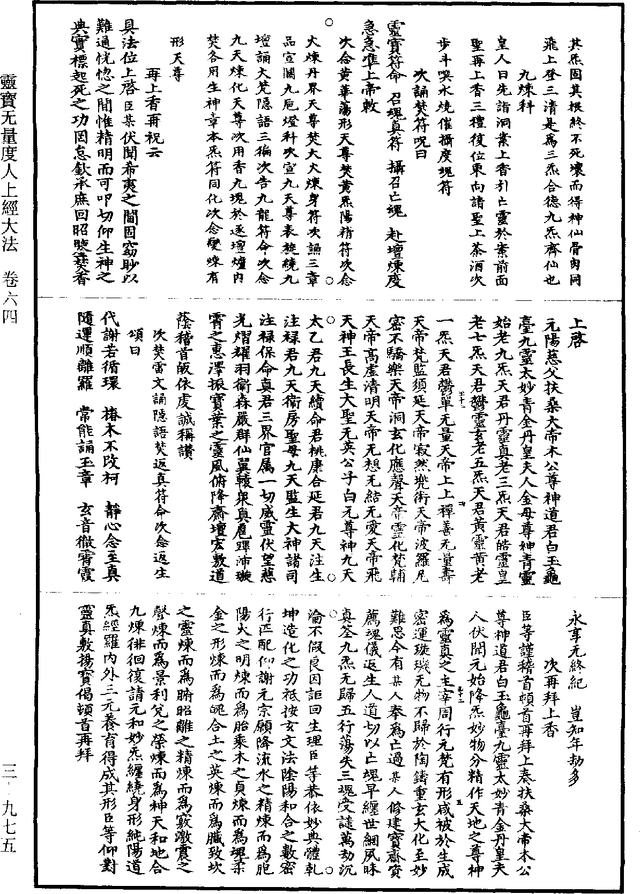 其炁固其根終不死壞而得神仙骨肉同
飛上登三清是為三炁合德九炁齊仙也
九煉科
皇人曰先詣洞案上香引亡靈於案前面
聖再上香三禮復位東向諸聖上茶酒次
步斗噀水燒催攝度魂符
次誦焚符呪曰
靈寶符命 召魂真符 攝召亡魂 赴壇煉度
急急準上帝敕
次念黃華蕩形天尊焚黃炁陽精符次念
火煉丹界天尊焚大火煉身符次誦三章
品宣關九巵燈科次宣九天尊表旋繞九
壇誦大梵隱語三徧次告九龍符命次念
九天煉化天尊次用香九塊於逐壇爐內
焚各用生神章本炁符同化次念變煉有
形天尊
再上香再祝云
具法位上啓臣某伏聞希夷之間固窈眇以
難通恍惚之閒惟精明而可叩切仰生神之
典實標起死之功罔怠欽承庶回昭晙蓺香
上啓
元陽慈父扶桑大帝木公尊神道君白玉龜
臺九靈太妙青金丹皇夫人金母尊神青靈
始老九炁天君丹靈真老三炁天君皓靈皇
老七炁天君鬱靈玄老五炁天君黃靈黃老
一炁天君鬱單无量天帝上上禪善无量壽
天帝梵監須延天帝寂然兜術天帝波羅尼
密不驕樂天帝洞玄化應聲天帝靈化梵輔
天帝高虛清明天帝无想无結无愛天帝飛
天神王長生大聖无英公子白元尊神九天
太乙君九天續命君桃康合延君九天注生
注祿君九天衛房聖母九天監生大神諸司
注祿保命真君三界官属一切威靈伏望慈
光熠耀羽衛森嚴群仙翼轅衆真扈蹕沛璇
霄之惠澤振寶葉之靈風俯降齋壇宏敷道
蔭稽首皈依虔誠稱讚
次焚雷文誦隱語焚返真符命次念返生
頌曰
代謝若循環 椿木不改柯 靜心念至真
隨運順離羅 常能誦玉章 玄音徹霄霞
永享无終紀 豈知年劫多
次再拜上香
臣等謹稽首頓首再拜上奏扶桑大帝木公
尊神道君白玉龜臺九靈太妙青金丹皇夫
人伏聞元始降炁妙物分精作天地之尊神
為靈真之主宰周行元梵有形咸被於生成
密運璇璣无物不歸於陶鑄重玄大化至妙
難思今有某人奉為亡過某人修建寶齋資
薦魂儀返生人道切以亡魂早纏世網風昧
真筌九炁无歸五行蕩失三魂受譴萬劫沉
淪不假良因詎回生理臣等恭依妙典體乾
坤造化之功祗按玄文法陰陽和合之數密
行匹配仰謝元宗願降流水之精煉而為胞
陽火之明煉而為胎乘木之貞煉而為魂柔
金之形煉而為魄合土之英煉而為臟致坎
之靈煉而為腑昭離之精煉而為竅激震之
聲煉而為景利兌之榮煉而為神天和地合
九煉徘徊復請元和妙炁纏繞身形純陽道
炁經羅內外三元養育得成其形臣等仰對
靈真敷揚寶偈頓首再拜
靈寶无量度人上經大法 卷六四
三－九七五